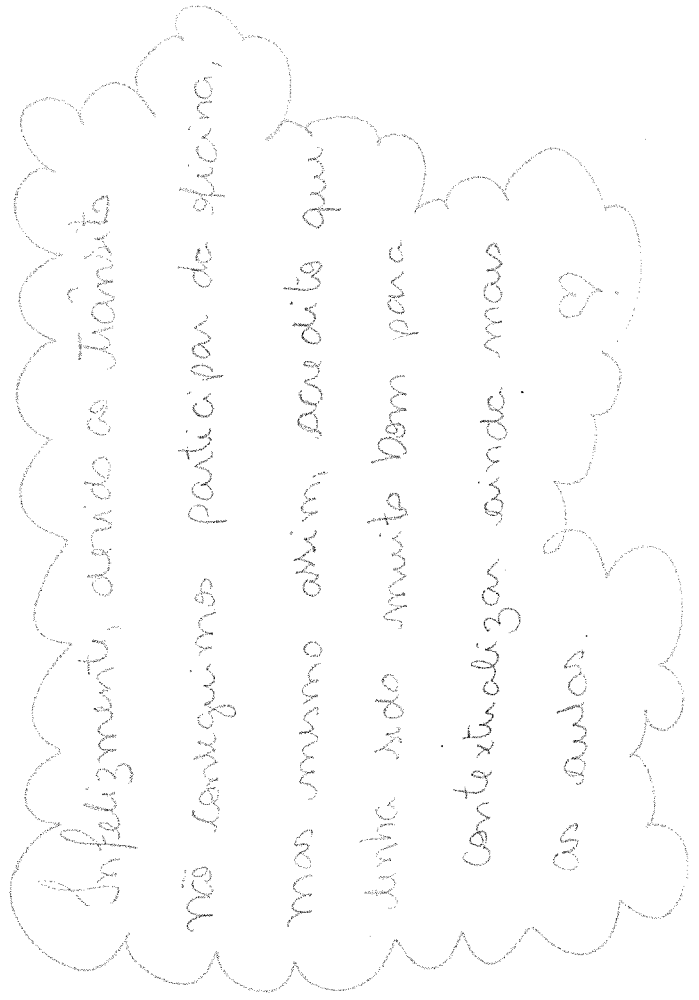 Infelizmente, devido ao trânsito
não conseguimos participar da oficina,
mas mesmo assim, acredito que
tenha sido muito bom para
contextualizar ainda mais
as aulas.